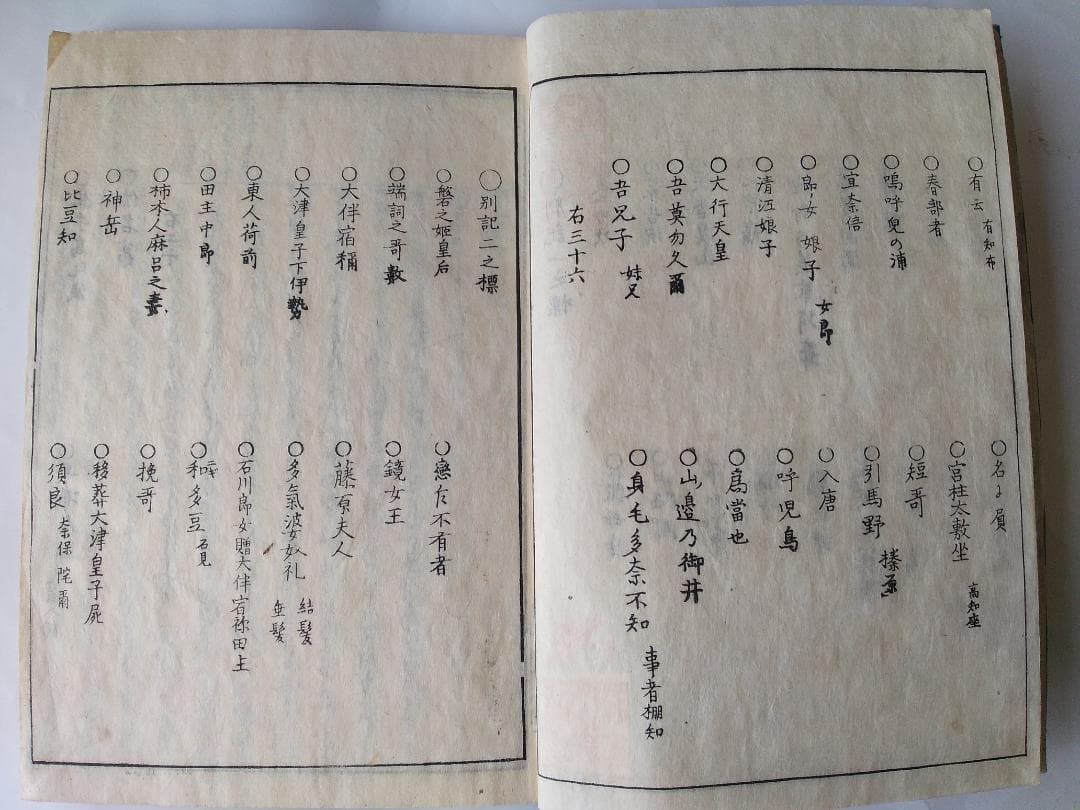 ○有云 有知布
○名に屓
○春部者
○宮柱太敷坐 高知座
○嗚呼兒の浦
○短哥
○宜奈倍
○引馬野 榛原
○郎女 娘子 女郎
○入唐
○清江娘子
○呼児鳥
○大行天皇
○為當也
○吾莫勿久爾
○山邉乃御井
○吾兄子 妹兄
○身毛多奈不知 事者棚知
右三十六
○別記二之標
○磐之姫皇后
○戀乍不有者
○端詞之哥數
○鏡女王
○大伴宿禰
○藤原夫人
○大津皇子下伊勢
○多氣波奴礼 結髪 垂髪
○東人荷前
○石川郎女贈大伴宿祢田主
○田主中郎
○和多豆 石見
○柿本人麻呂之妻
○挽哥
○神岳
○移葬大津皇子屍
○比豆知
○須良 奈保 陀爾